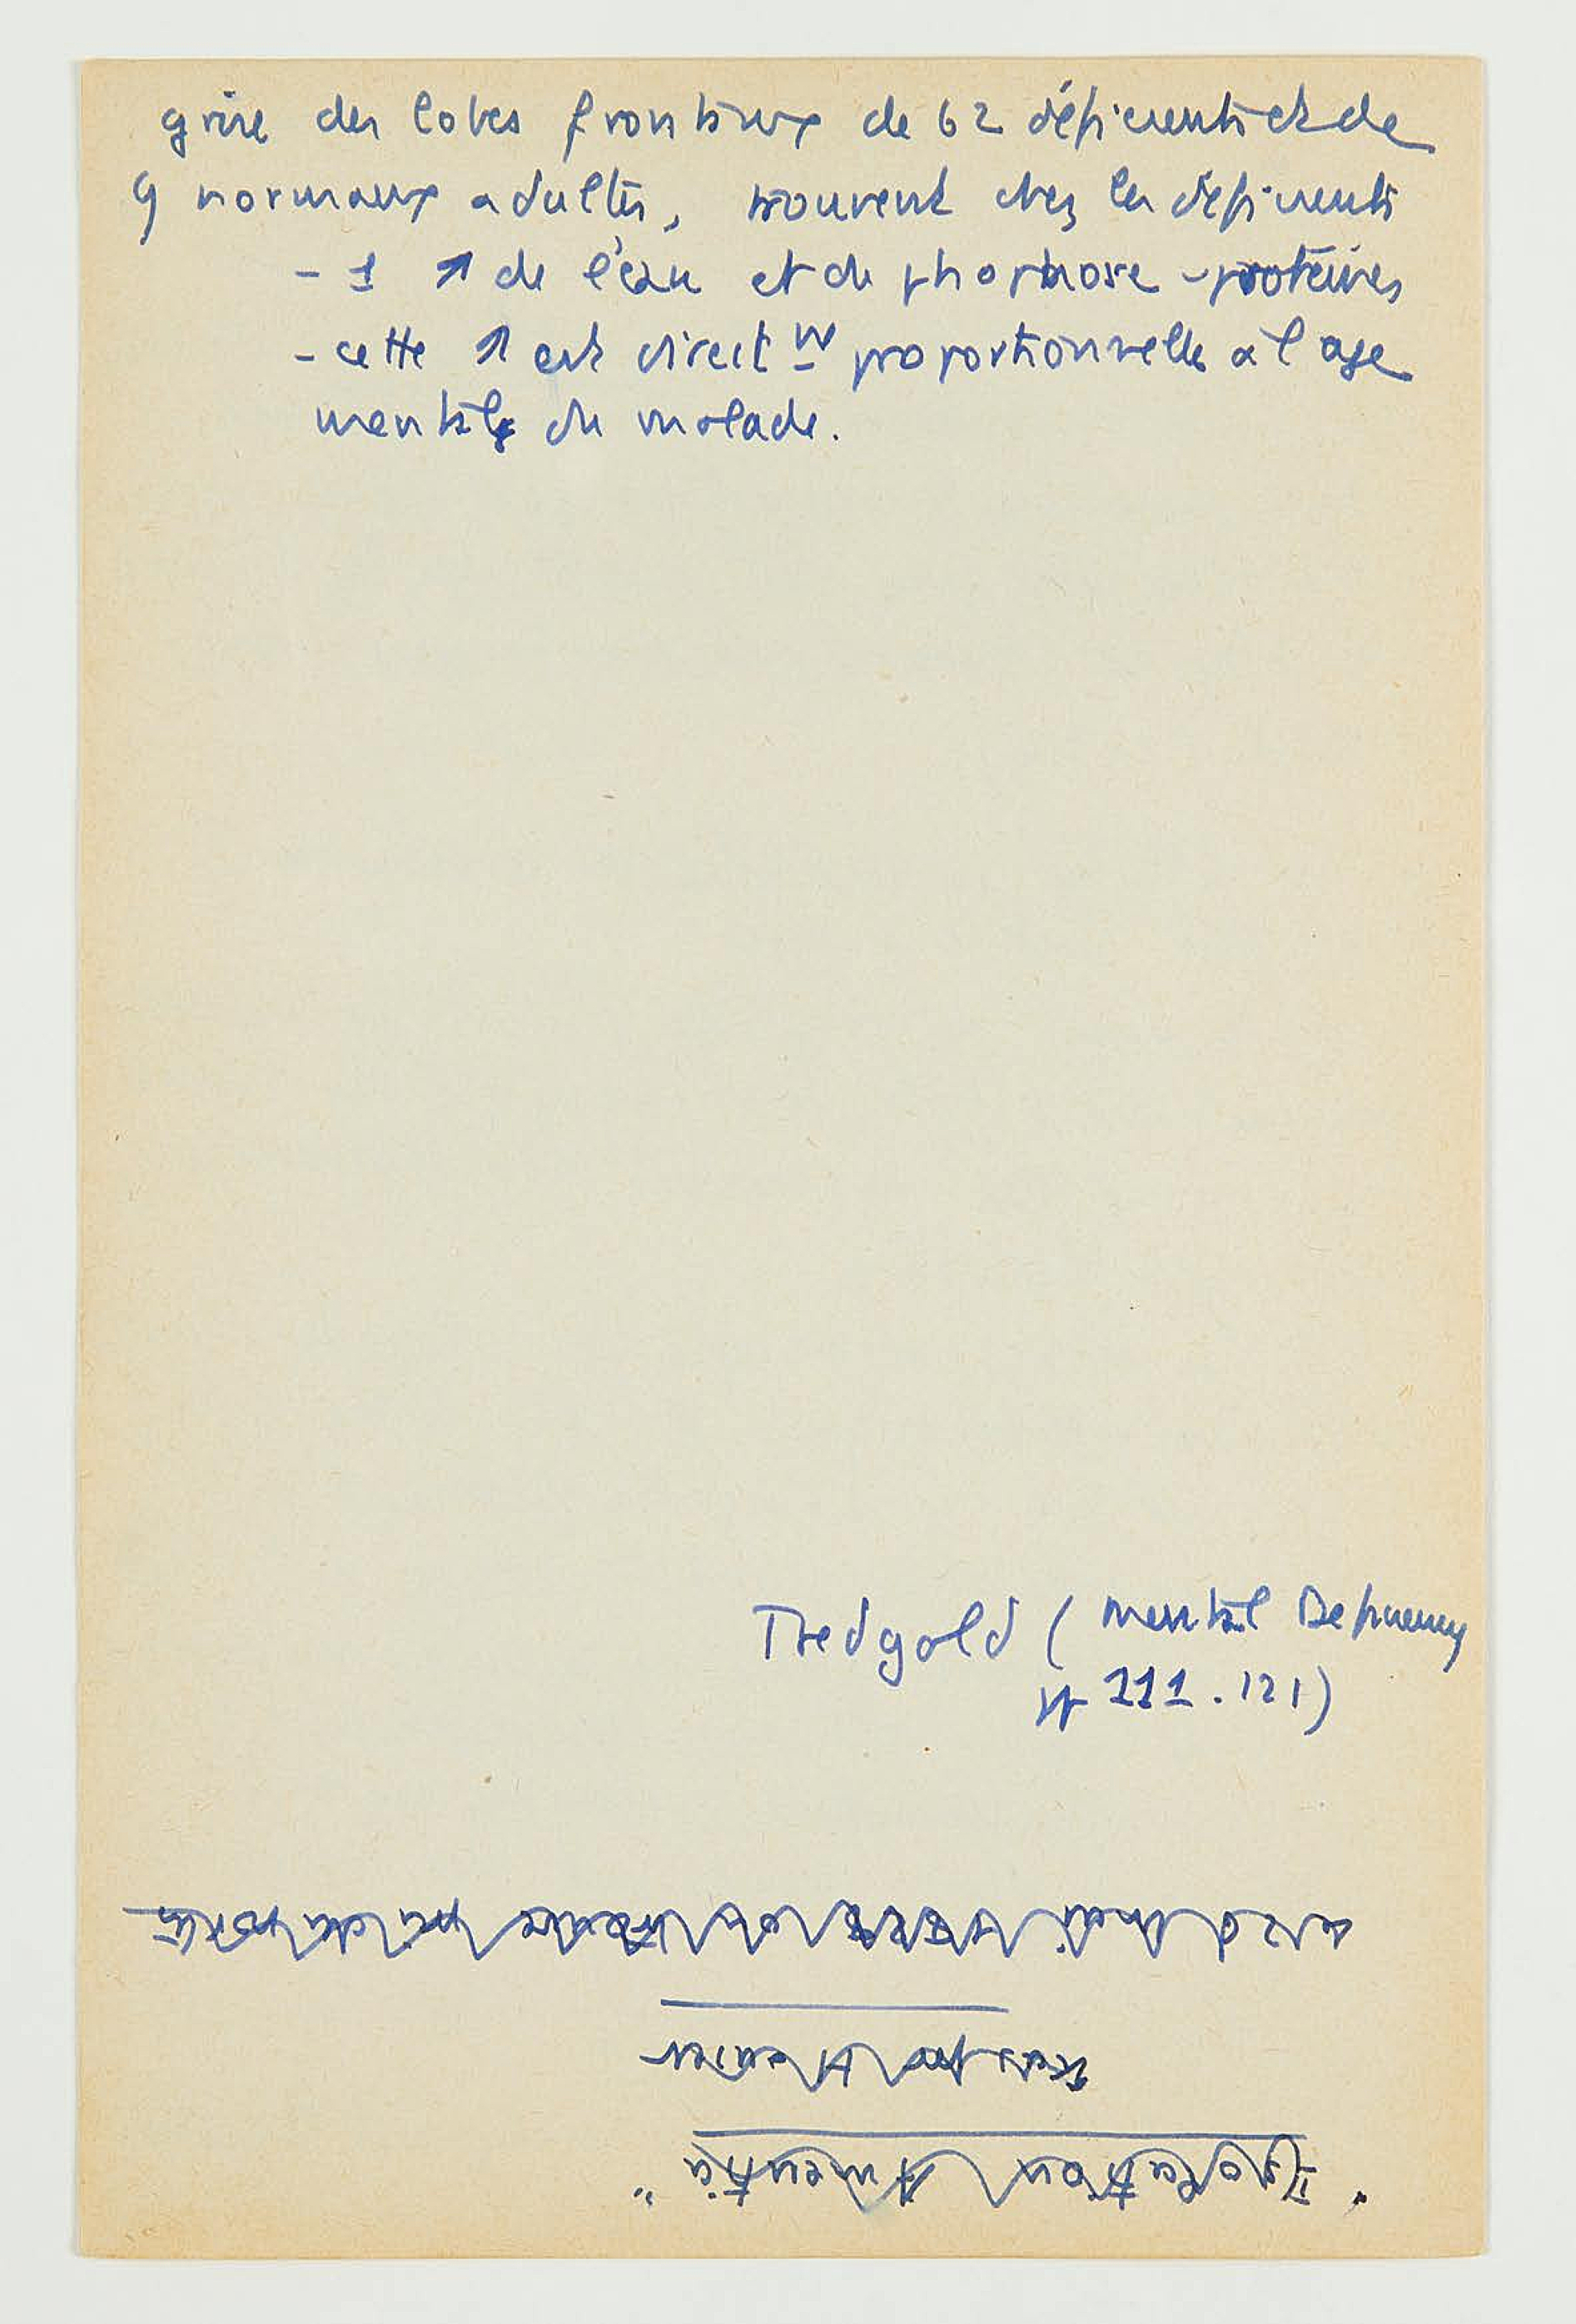 grise des lobes frontaux de 62 déficients et de
9 normaux adultes, trouvent chez les déficients
- 1 ↗ de l'eau et du phosphore - protéines
- cette ↗ est direct m proportionnelle à l'age
mental du malade.
Tredgold (Mental Deficiency
pp 111.121)
"Isolation Amentia"
Kaspar Hauser